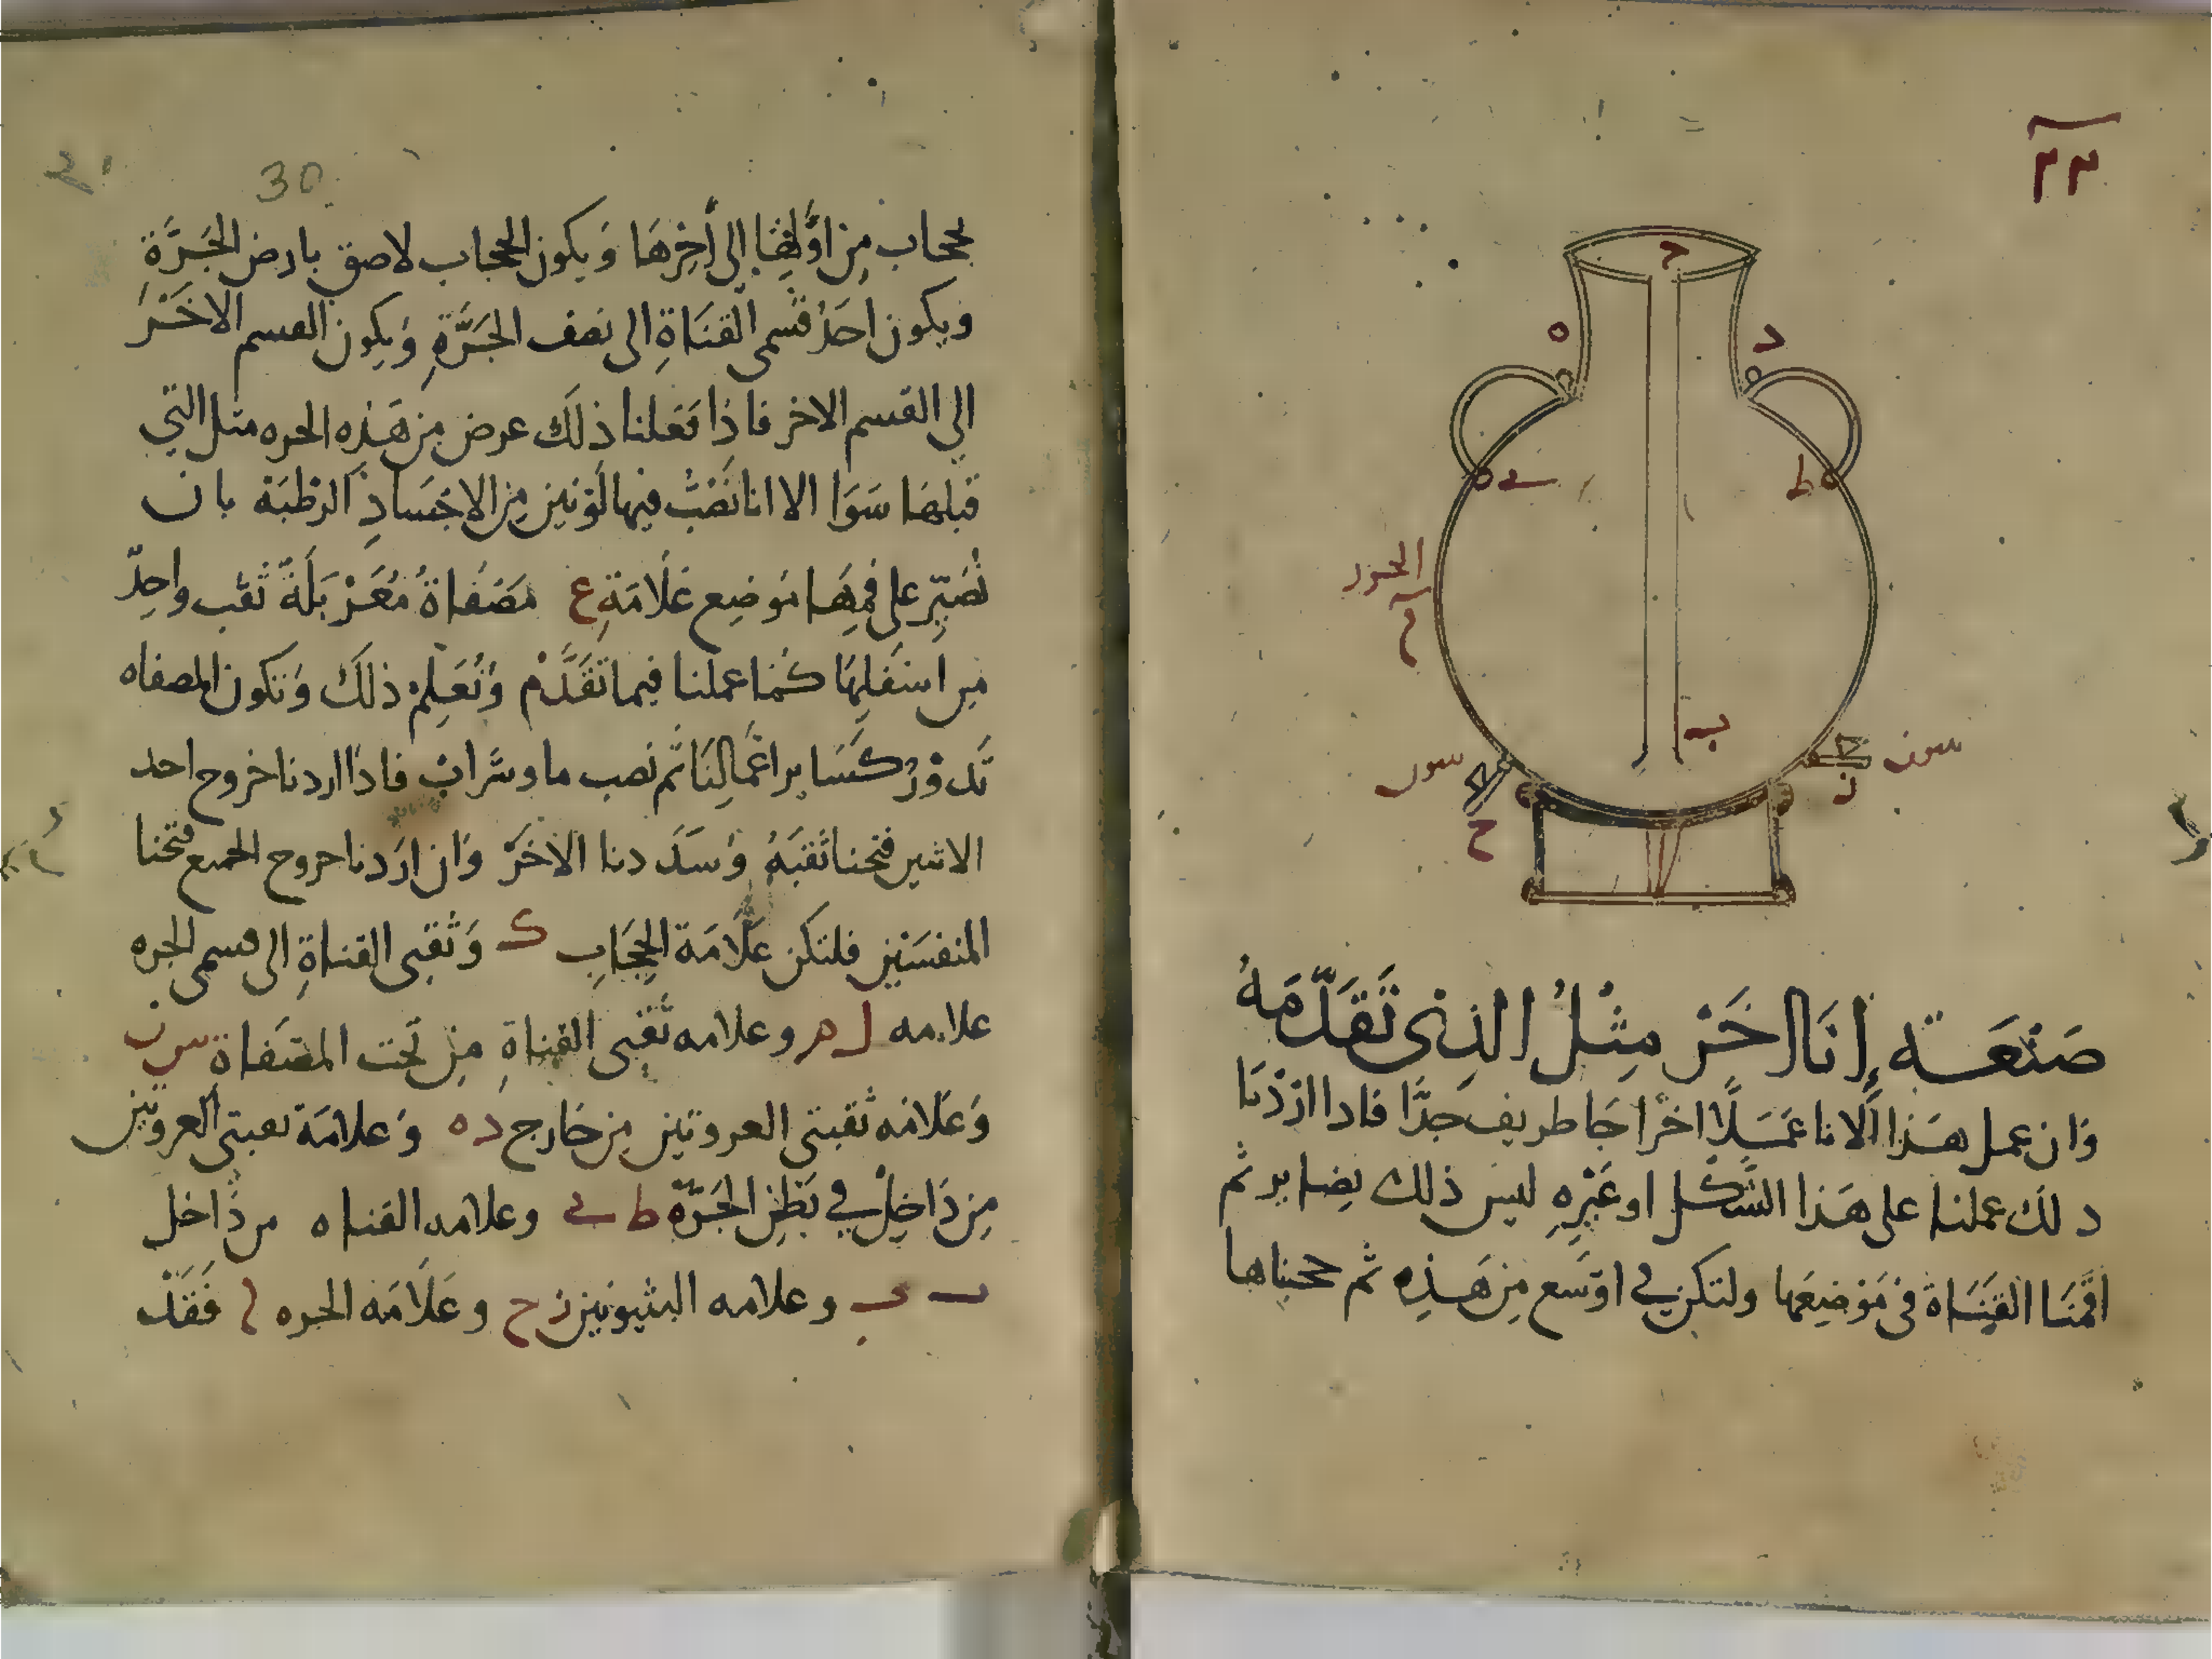 ٢٢
ح
ه
د
ى
ط
الجرة
م
ب
بثيون
ز
بثيون
ح
صَنْعَة إِنَاء اخَرْ مِثْلُ الذِى تَقَدَّمَهُ
وَان عمل هَذا الانا عَمَلًا اخرًا جَا طريف جدًّا فاذا اردْنَا
ذلك عملنا على هَذا الشَّكْل او غَيْرِهِ ليس ذلك بضاير ثم
اقمْنَا القَنَاة فى مَوْضِعِهَا ولتكن فِي اوْسَع مِن هَذِهِ ثم حجبناها
30
بحجاب مِن اوَّلِهَا إلى أخِرهَا وَيكون الحجاب لاصق بارض الجَرَّةِ
ويكون احَدُ قسمى القنَاةِ الى نصف الجَرَّةِ وَيكون القسم الاخَرْ
الي القسم الاخر فاذا فعلنا ذلك عرض مِن هَذِه الجره مثل التي
قبلهَا سَوَا الا انا نَصُبُّ فيها لَوْنَيْن مِن الاجْسَادِ الرَّطْبَة بان
نُصَيِّر على فمِهَا موضِع عَلَامَةِ ع مَصْفَاةٌ مُغَرْبَلَةً ثقب واحِدٌ
من اسْفَلِهَا كما عملنا فيما تَقَدَّمْ وَنُعَلِمْ ذلك وَتكون المصفاه
تَدُوْرُ كَسَاير اعْمَالِنَا ثم نصب ما وشَرابْ فاذا اردنا خروج احد
الاثنين فتحنا ثقبَهُ وَسَدَدنا الاخَرْ وَان ارَدنا خروج الجميع فتحنا
المنفسَيْن فلتكن عَلَامَة الحِجَابِ ك وَثقبى القناةِ الى قسمى الجره
علامه ل م وعلامه ثقبى القناةِ مِن تحت المصفَاةِ س ن
وَعَلَامَه ثقبتى العروتين مِن خَارج د ه وَعلامَة ثقبتى العروتين
مِن دَاخِلْ فِي بَطْنِ الجَرَّة ط ى وعلامه القناه من داخل
ب وعلامه البثيونين ز ح وعَلَامَه الجره م فَقَدْ